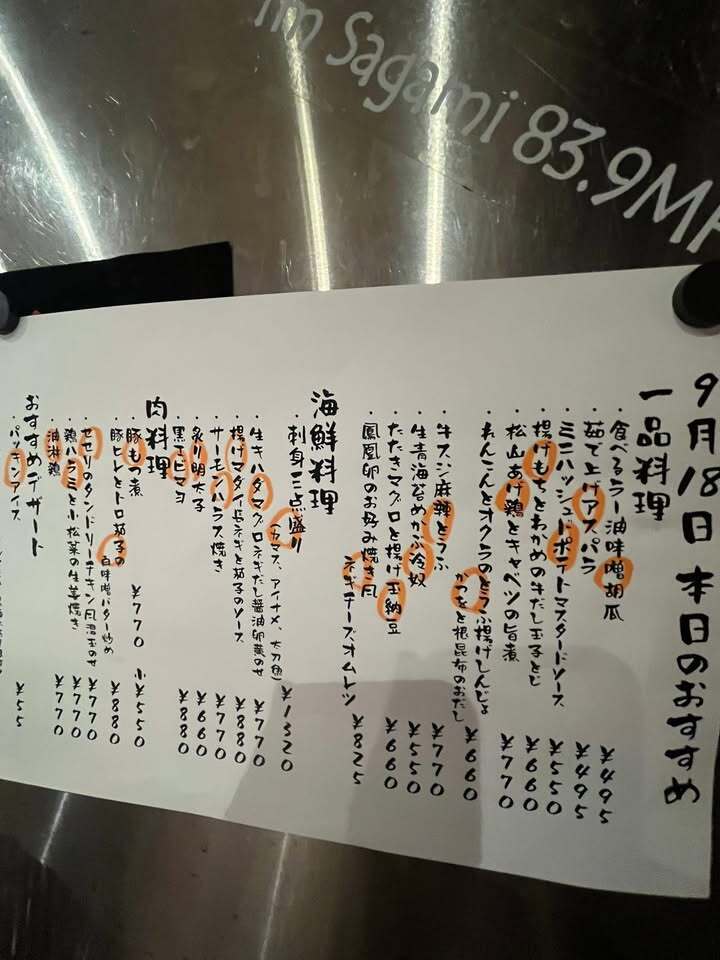 fm Sagami 83.9MH
9月18日 本日のおすすめ
一品料理
・食べるラー油味噌胡瓜 ¥495
・茹で上げアスパラ ¥495
・ミニハッシュドポテトマスタードソース ¥550
・揚げもちとわかめの牛だし玉子とじ ¥660
・松山あげ鶏とキャベツの旨煮 ¥770
・れんこんとオクラのとうふ揚げしんじょ
かつをと根昆布のおだし ¥660
・牛スジ麻辣とうふ ¥770
・生青海苔めかぶ冷奴 ¥550
・たたきマグロと揚げ玉納豆 ¥660
・鳳凰卵のお好み焼き風
ネギチーズオムレツ ¥825
海鮮料理
・刺身三点盛り ¥1320
(カマス、アイナメ、太刀魚)
・生キハダマグロネギだし醤油卵黄のせ ¥770
・揚げマダイ長ネギと茄子のソース ¥880
・サーモンハラス焼き ¥770
・炙り明太子 ¥660
・黒エビマヨ ¥880
肉料理
・豚もつ煮 ¥770 小¥550
・豚ヒレとトロ茄子の
白味噌バター炒め ¥880
・セセリのタンドリーチキン風温玉のせ ¥770
・鶏ハラミと小松菜の生姜焼き ¥770
・油淋鶏 ¥770
おすすめデザート
・パッキンアイス ¥55